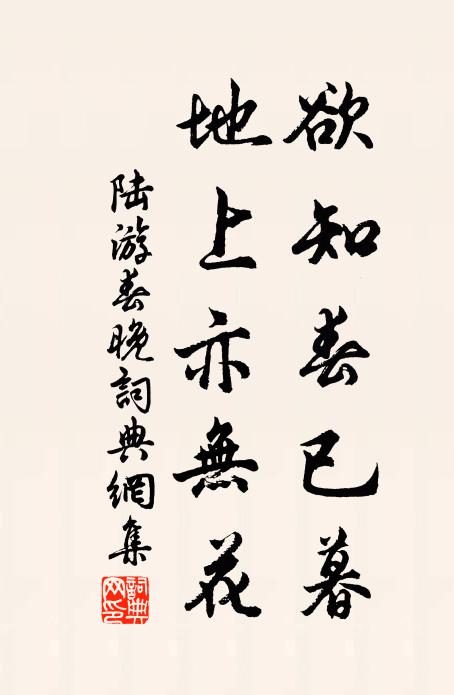 欲知春已暮
地上亦無花
陆游春晚詞典網集
詞典
网印